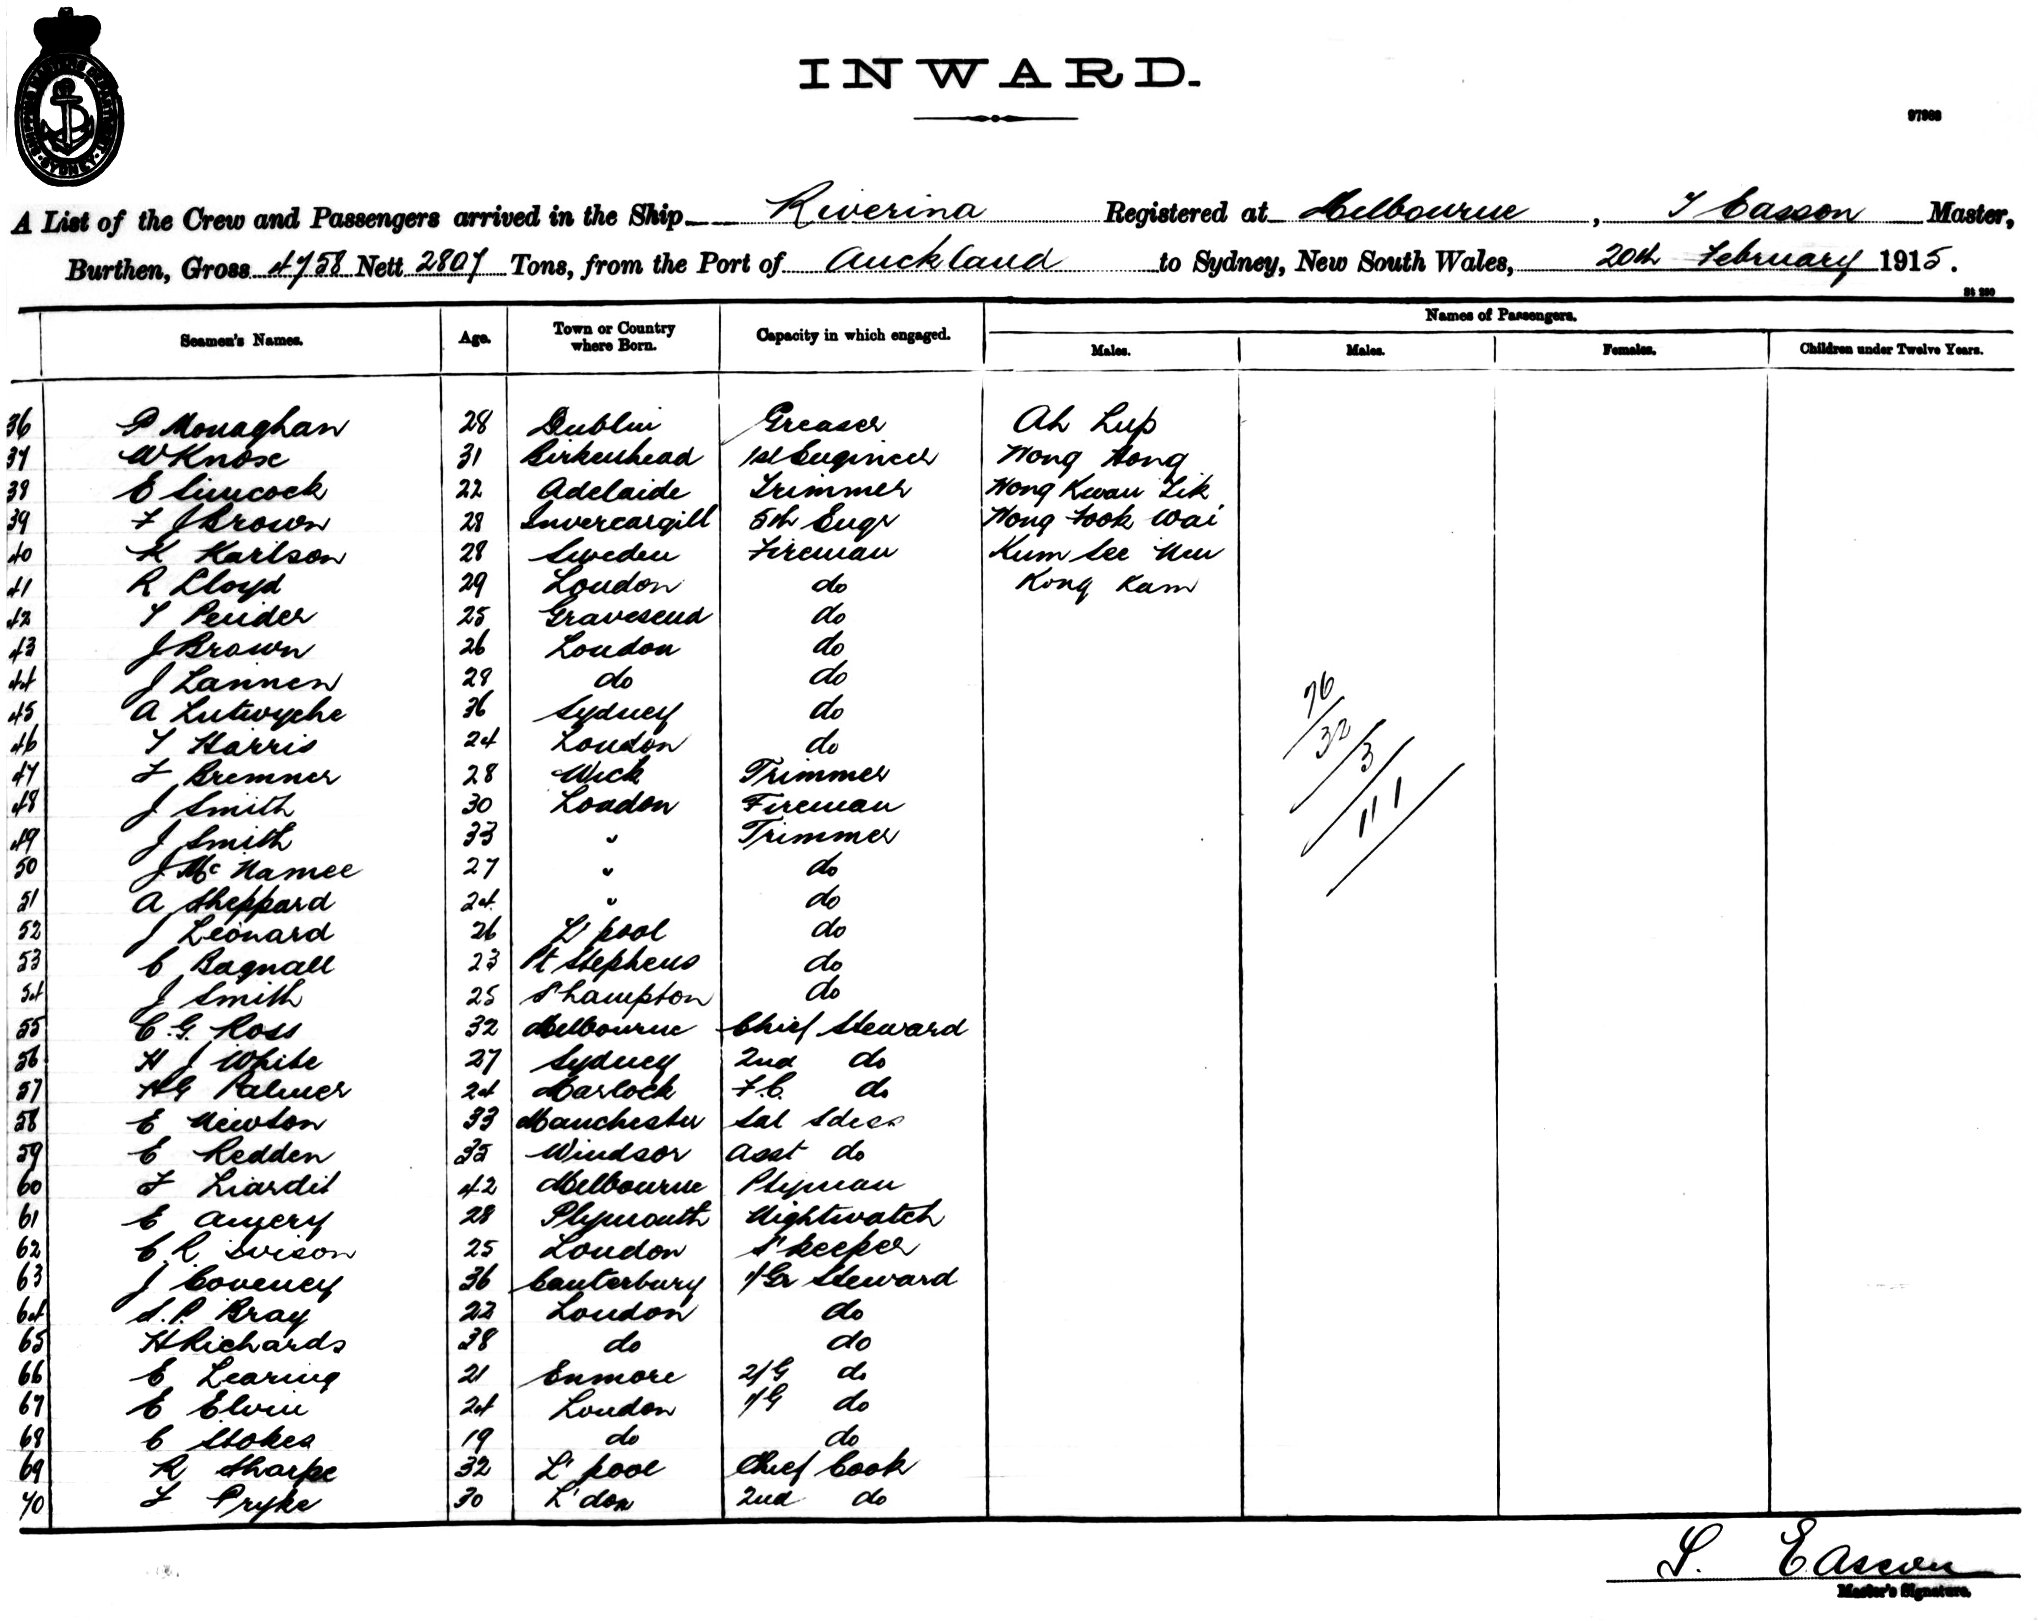 INWARD.
97908
A List of the Crew and Passengers arrived in the Ship Riverina Registered at Melbourne, T Easson Master,
Burthen, Gross 4758 Nett 2807 Tons, from the Port of Auckland to Sydney, New South Wales, 20th February 1915.
Seamen's Names. Age. Town or Country where Born. Capacity in which engaged. Names of Passengers.
Males. Males. Females. Children under Twelve Years.
36 P Monaghan 28 Dublin Greaser Ah Lup
37 W Knox 31 Birkenhead 1st Engineer Wong Hong
38 E Simcock 22 Adelaide Trimmer Wong Kwan Lik
39 F J Brown 28 Invercargill 5th Engr Wong Fook Wai
40 K Karlson 28 Sweden Fireman Kum See
41 R Lloyd 29 London do Kong Kam
42 T Pender 25 Gravesend do
43 J Brown 26 London do
44 J Lannen 28 do do
45 A Lutwyche 36 Sydney do
46 T Harris 24 London do
47 F Bremner 28 Wick Trimmer
48 J Smith 30 London Fireman
49 J Smith 33 " Trimmer
50 J McNamee 27 " do
51 A Sheppard 24 " do
52 J Leonard 26 L'pool do
53 C Bagnall 23 Pt Stephens do
54 J Smith 25 S'hampton do
55 C. G. Ross 32 Melbourne Chief Steward
56 H J White 27 Sydney 2nd do
57 H G Palmer 24 Marlock F.C. do
58 E Newton 33 Manchester Sal Sdess
59 E Redden 35 Windsor Asst do
60 F Liardit 42 Melbourne Ptyman
61 E Amery 28 Plymouth Nightwatch
62 C. R. Ivison 25 London S'keeper
63 J Coveney 36 Canterbury 1/Gr Steward
64 S. P. Bray 22 London do
65 H Richards 38 do do
66 E Learing 21 Enmore 2/G do
67 E Elvin 24 London 1/G do
68 C Stokes 19 do do
69 R Sharpe 32 L'pool Chief Cook
70 F Pryke 30 L'don 2nd do
76
32
3
111
T. Easson
Master's Signature.